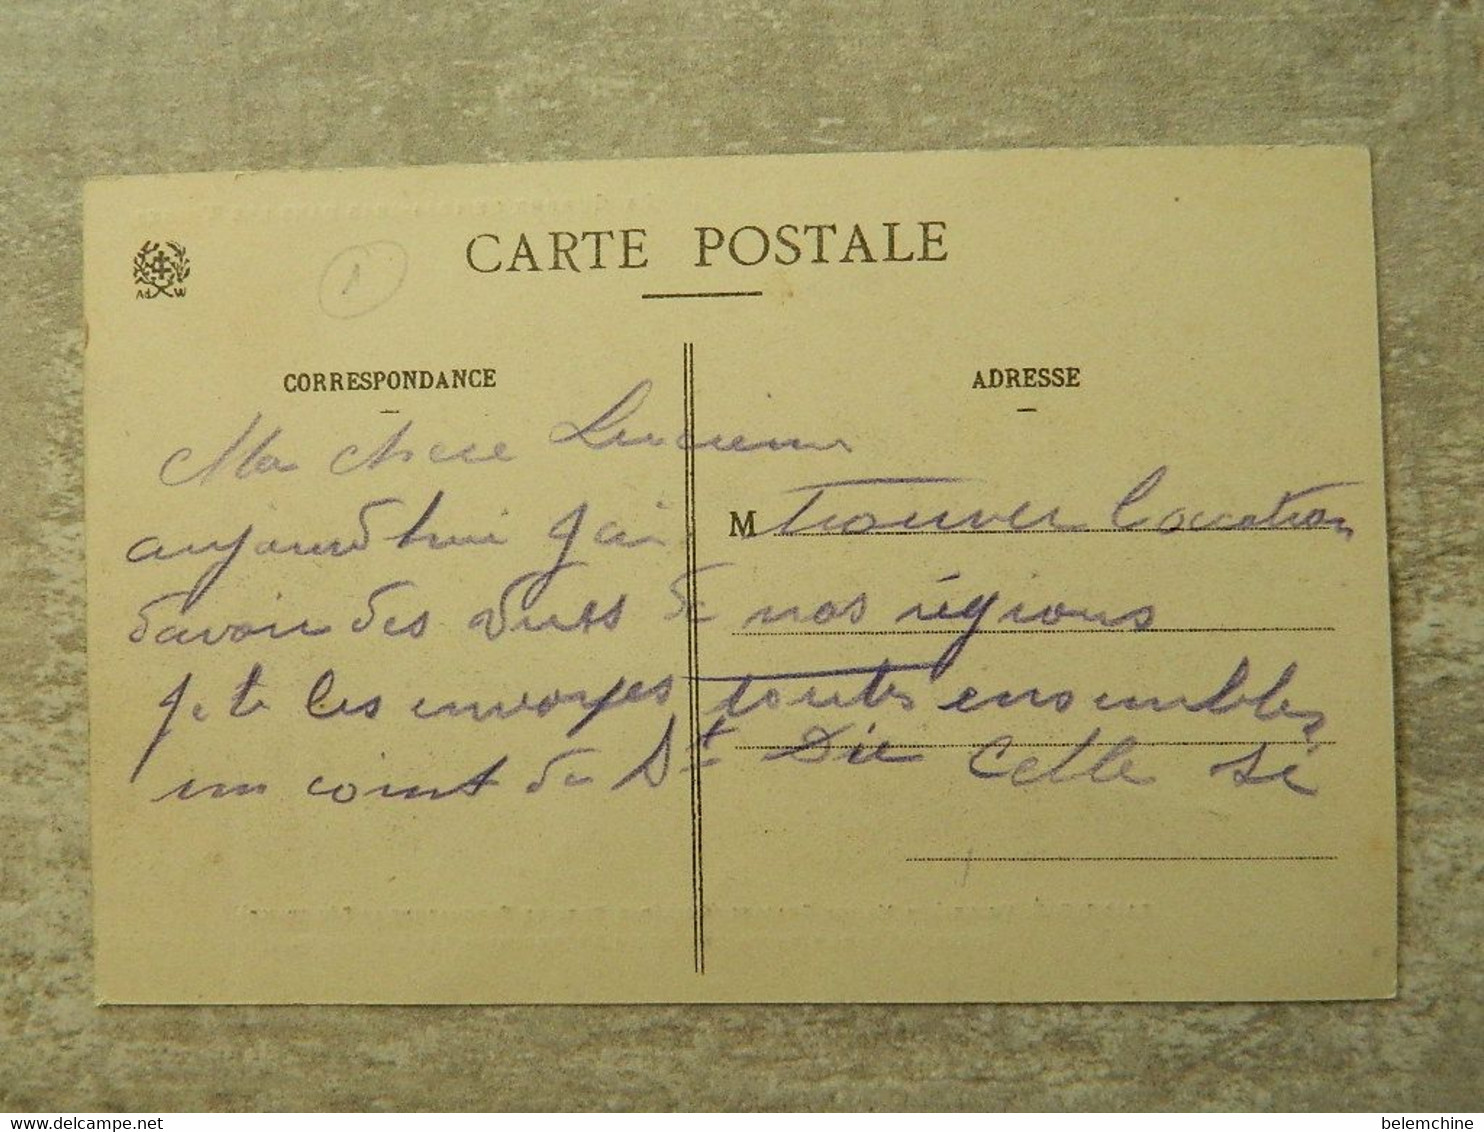 CARTE POSTALE
Ad W
1
CORRESPONDANCE
ADRESSE
Ma chere Lucienne
aujourd'hui j'ai M trouver l'occation
davoir des vues de nos régions
je te les envoyes toutes ensembles
un coint de St Die Cette si
delcampe.net
belemchine